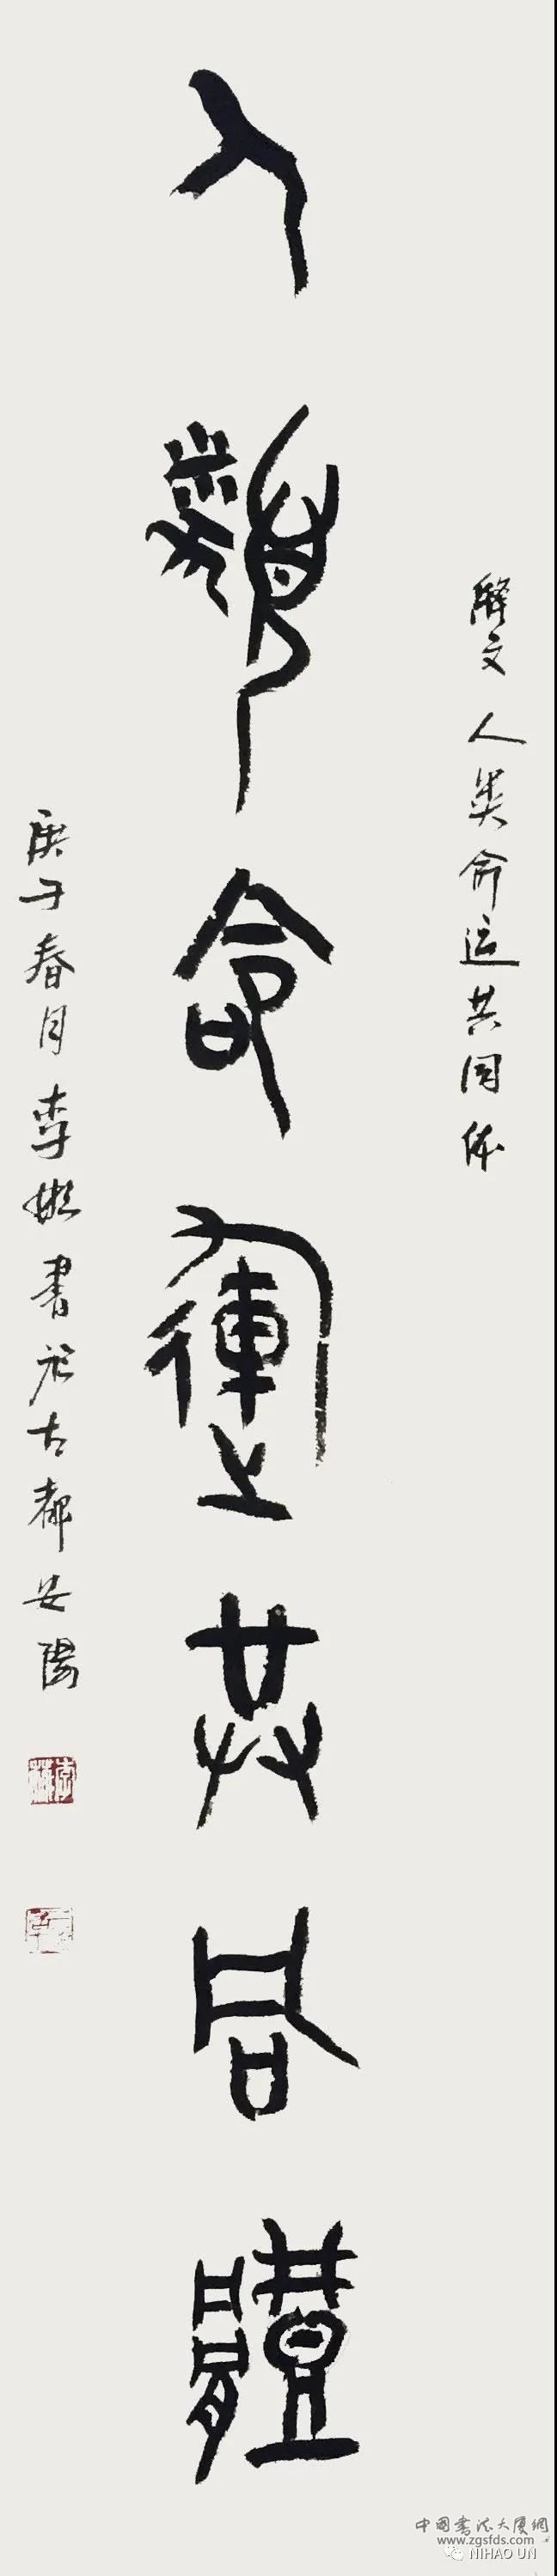 释文 人类命运共同体
人類命運共同體
庚子春月李書於古都安陽
中国书法大厦網
www.zgsfds.com
NIHAO UN